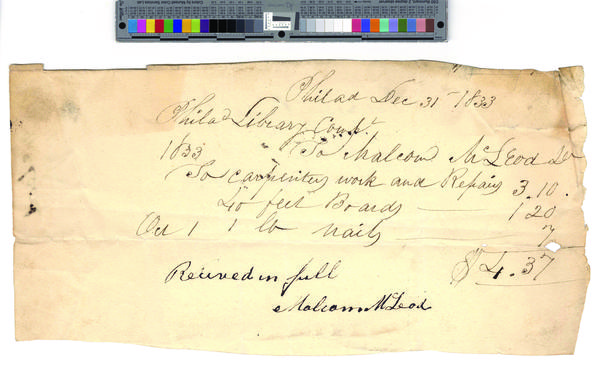 Philad Dec 31st 1833
Philad Library Compy.
1833 To Malcom McLeod Dr
To carpenters work and Repairs 3.10.
40 feet Boards 1.20
Oct 1 1 lb nails 7
$4.37
Reiived in full
Malcom McLeod